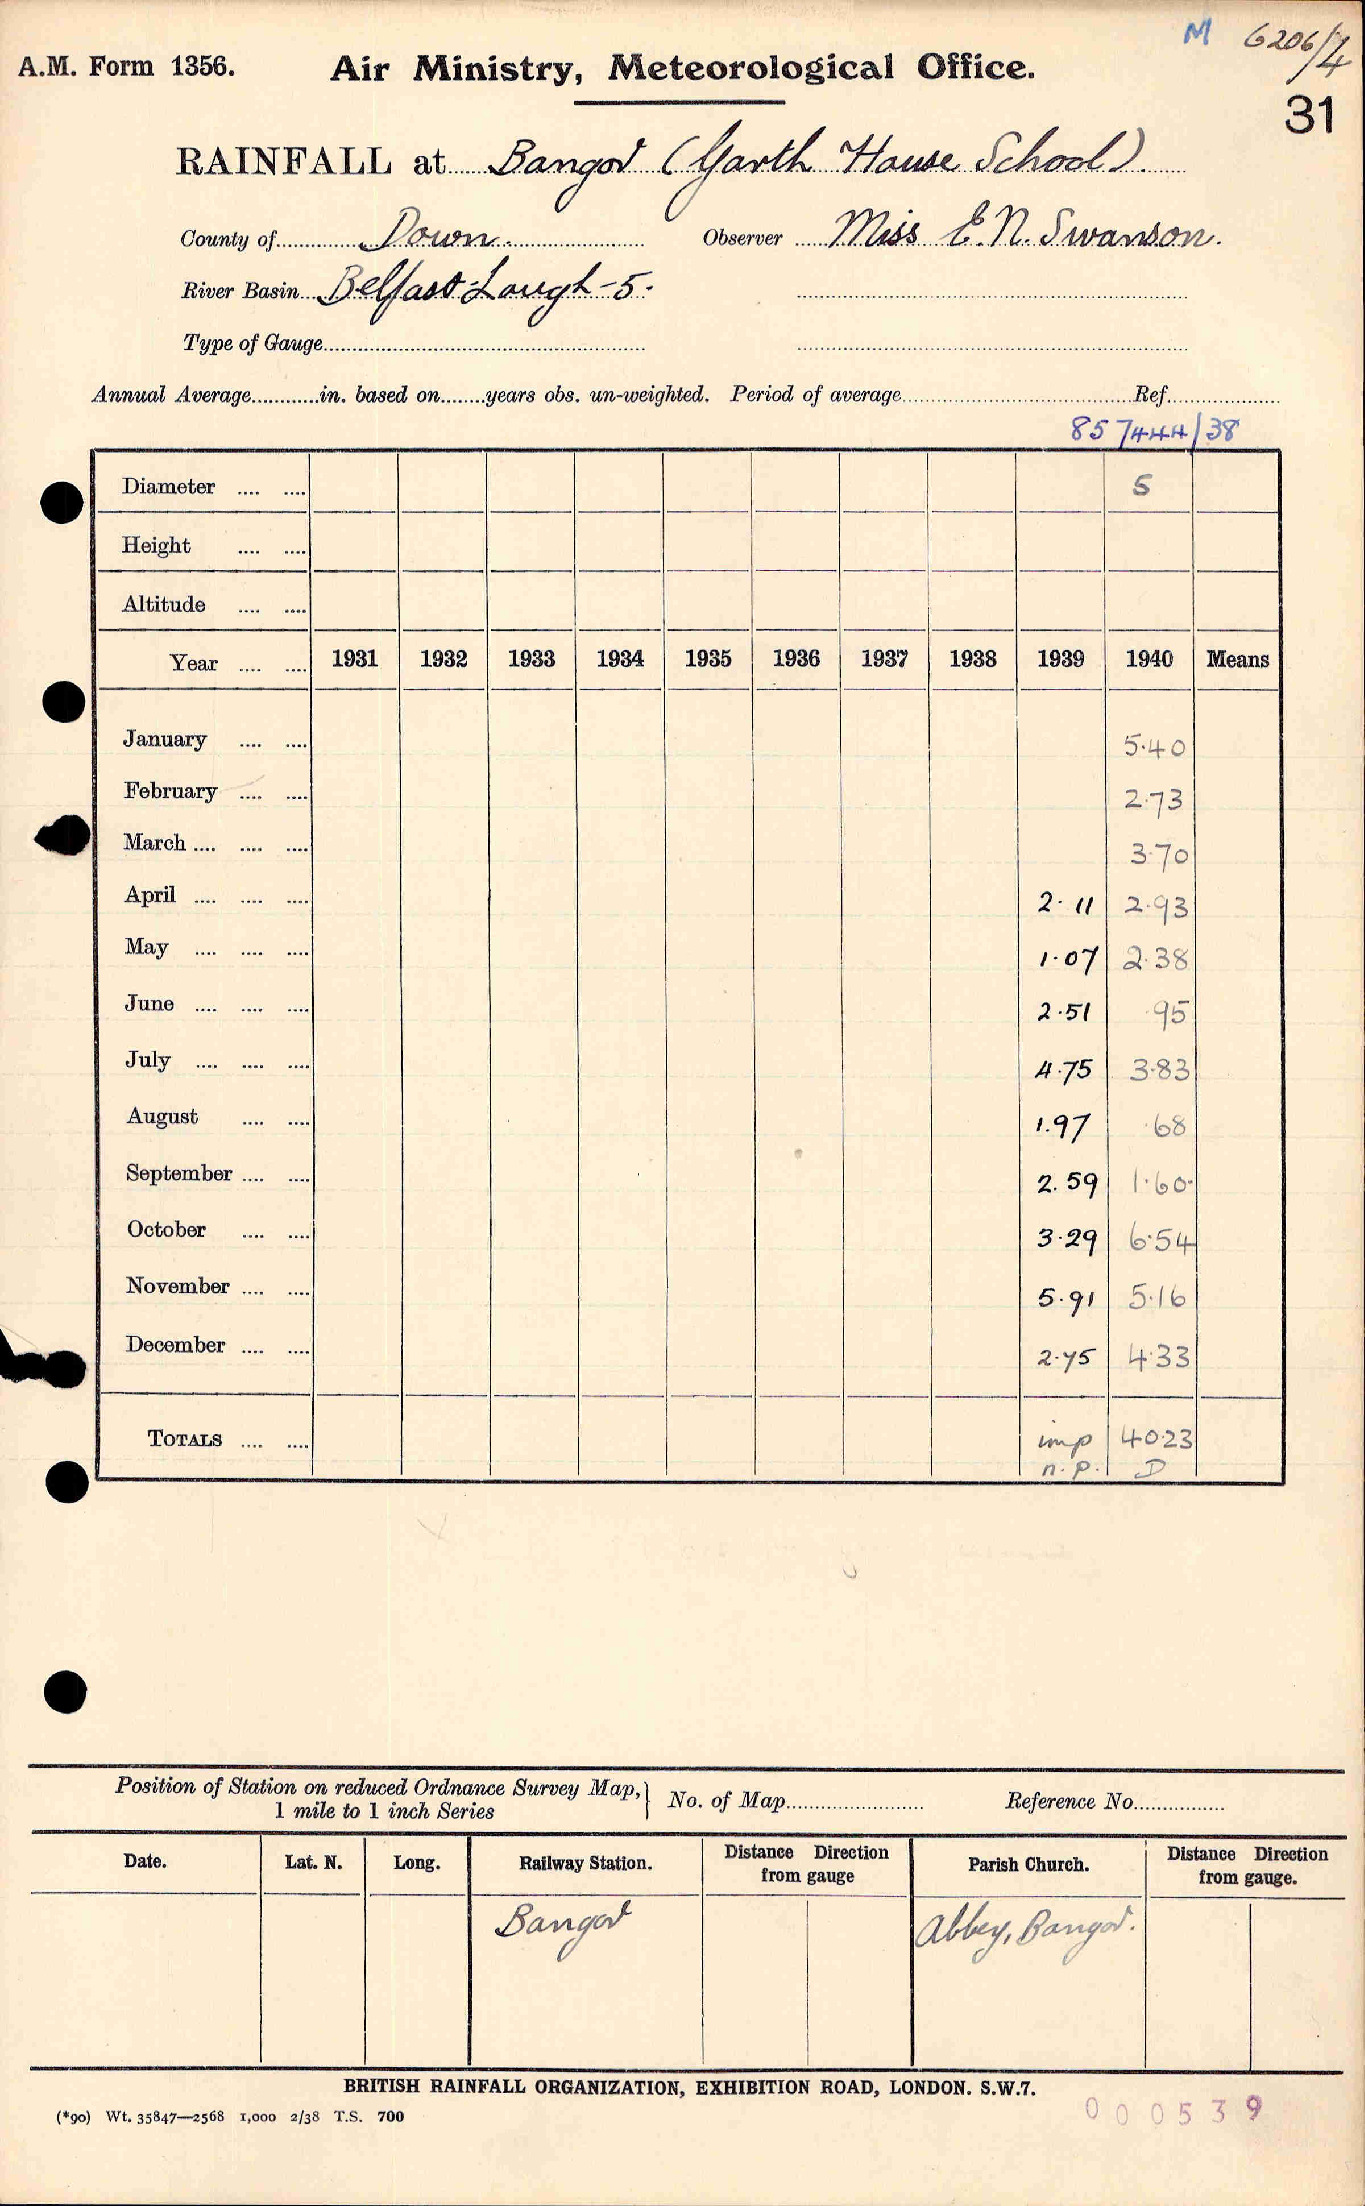 M 6206/4
A.M. Form 1356. Air Ministry, Meteorological Office.
31
RAINFALL at Bangor (Garth House School)
County of Down. Observer Miss E. N. Swanson.
River Basin Belfast Lough - 5.
Type of Gauge
Annual Average in. based on years obs. un-weighted. Period of average Ref.
857444/38
Diameter 5
Height
Altitude
Year 1931 1932 1933 1934 1935 1936 1937 1938 1939 1940 Means
January 5.40
February 2.73
March 3.70
April 2.11 2.93
May 1.07 2.38
June 2.51 .95
July 4.75 3.83
August 1.97 .68
September 2.59 1.60
October 3.29 6.54
November 5.91 5.16
December 2.75 4.33
TOTALS imp 40.23
n.p. D
Position of Station on reduced Ordnance Survey Map, No. of Map Reference No.
1 mile to 1 inch Series
Date. Lat. N. Long. Railway Station. Distance Direction from gauge Parish Church. Distance Direction from gauge.
Bangor Abbey, Bangor.
BRITISH RAINFALL ORGANIZATION, EXHIBITION ROAD, LONDON. S.W.7.
(*90) Wt. 35847—2568 1,000 2/38 T.S. 700
000539